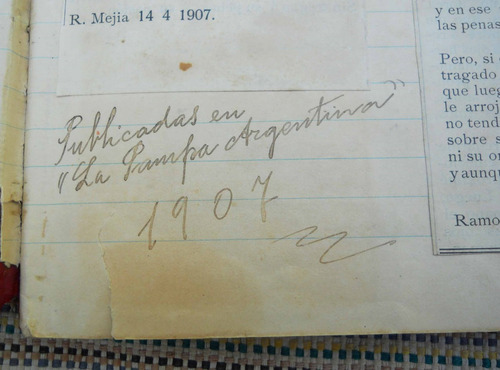 R. Mejia 14 4 1907.
Publicadas en
"La Pampa Argentina"
1907
y en ese
las penas
Pero, si
tragado
que lueg
le arroj
no tend
sobre s
ni su o
y aunqu
Ramo